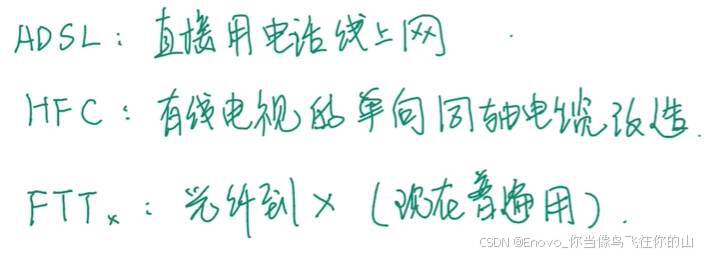 ADSL：直接用电话线上网
HFC：有线电视的单向同轴电缆改造.
FTTx：光纤到x（现在普遍用）.
CSDN @Enovo_你当像鸟飞往你的山